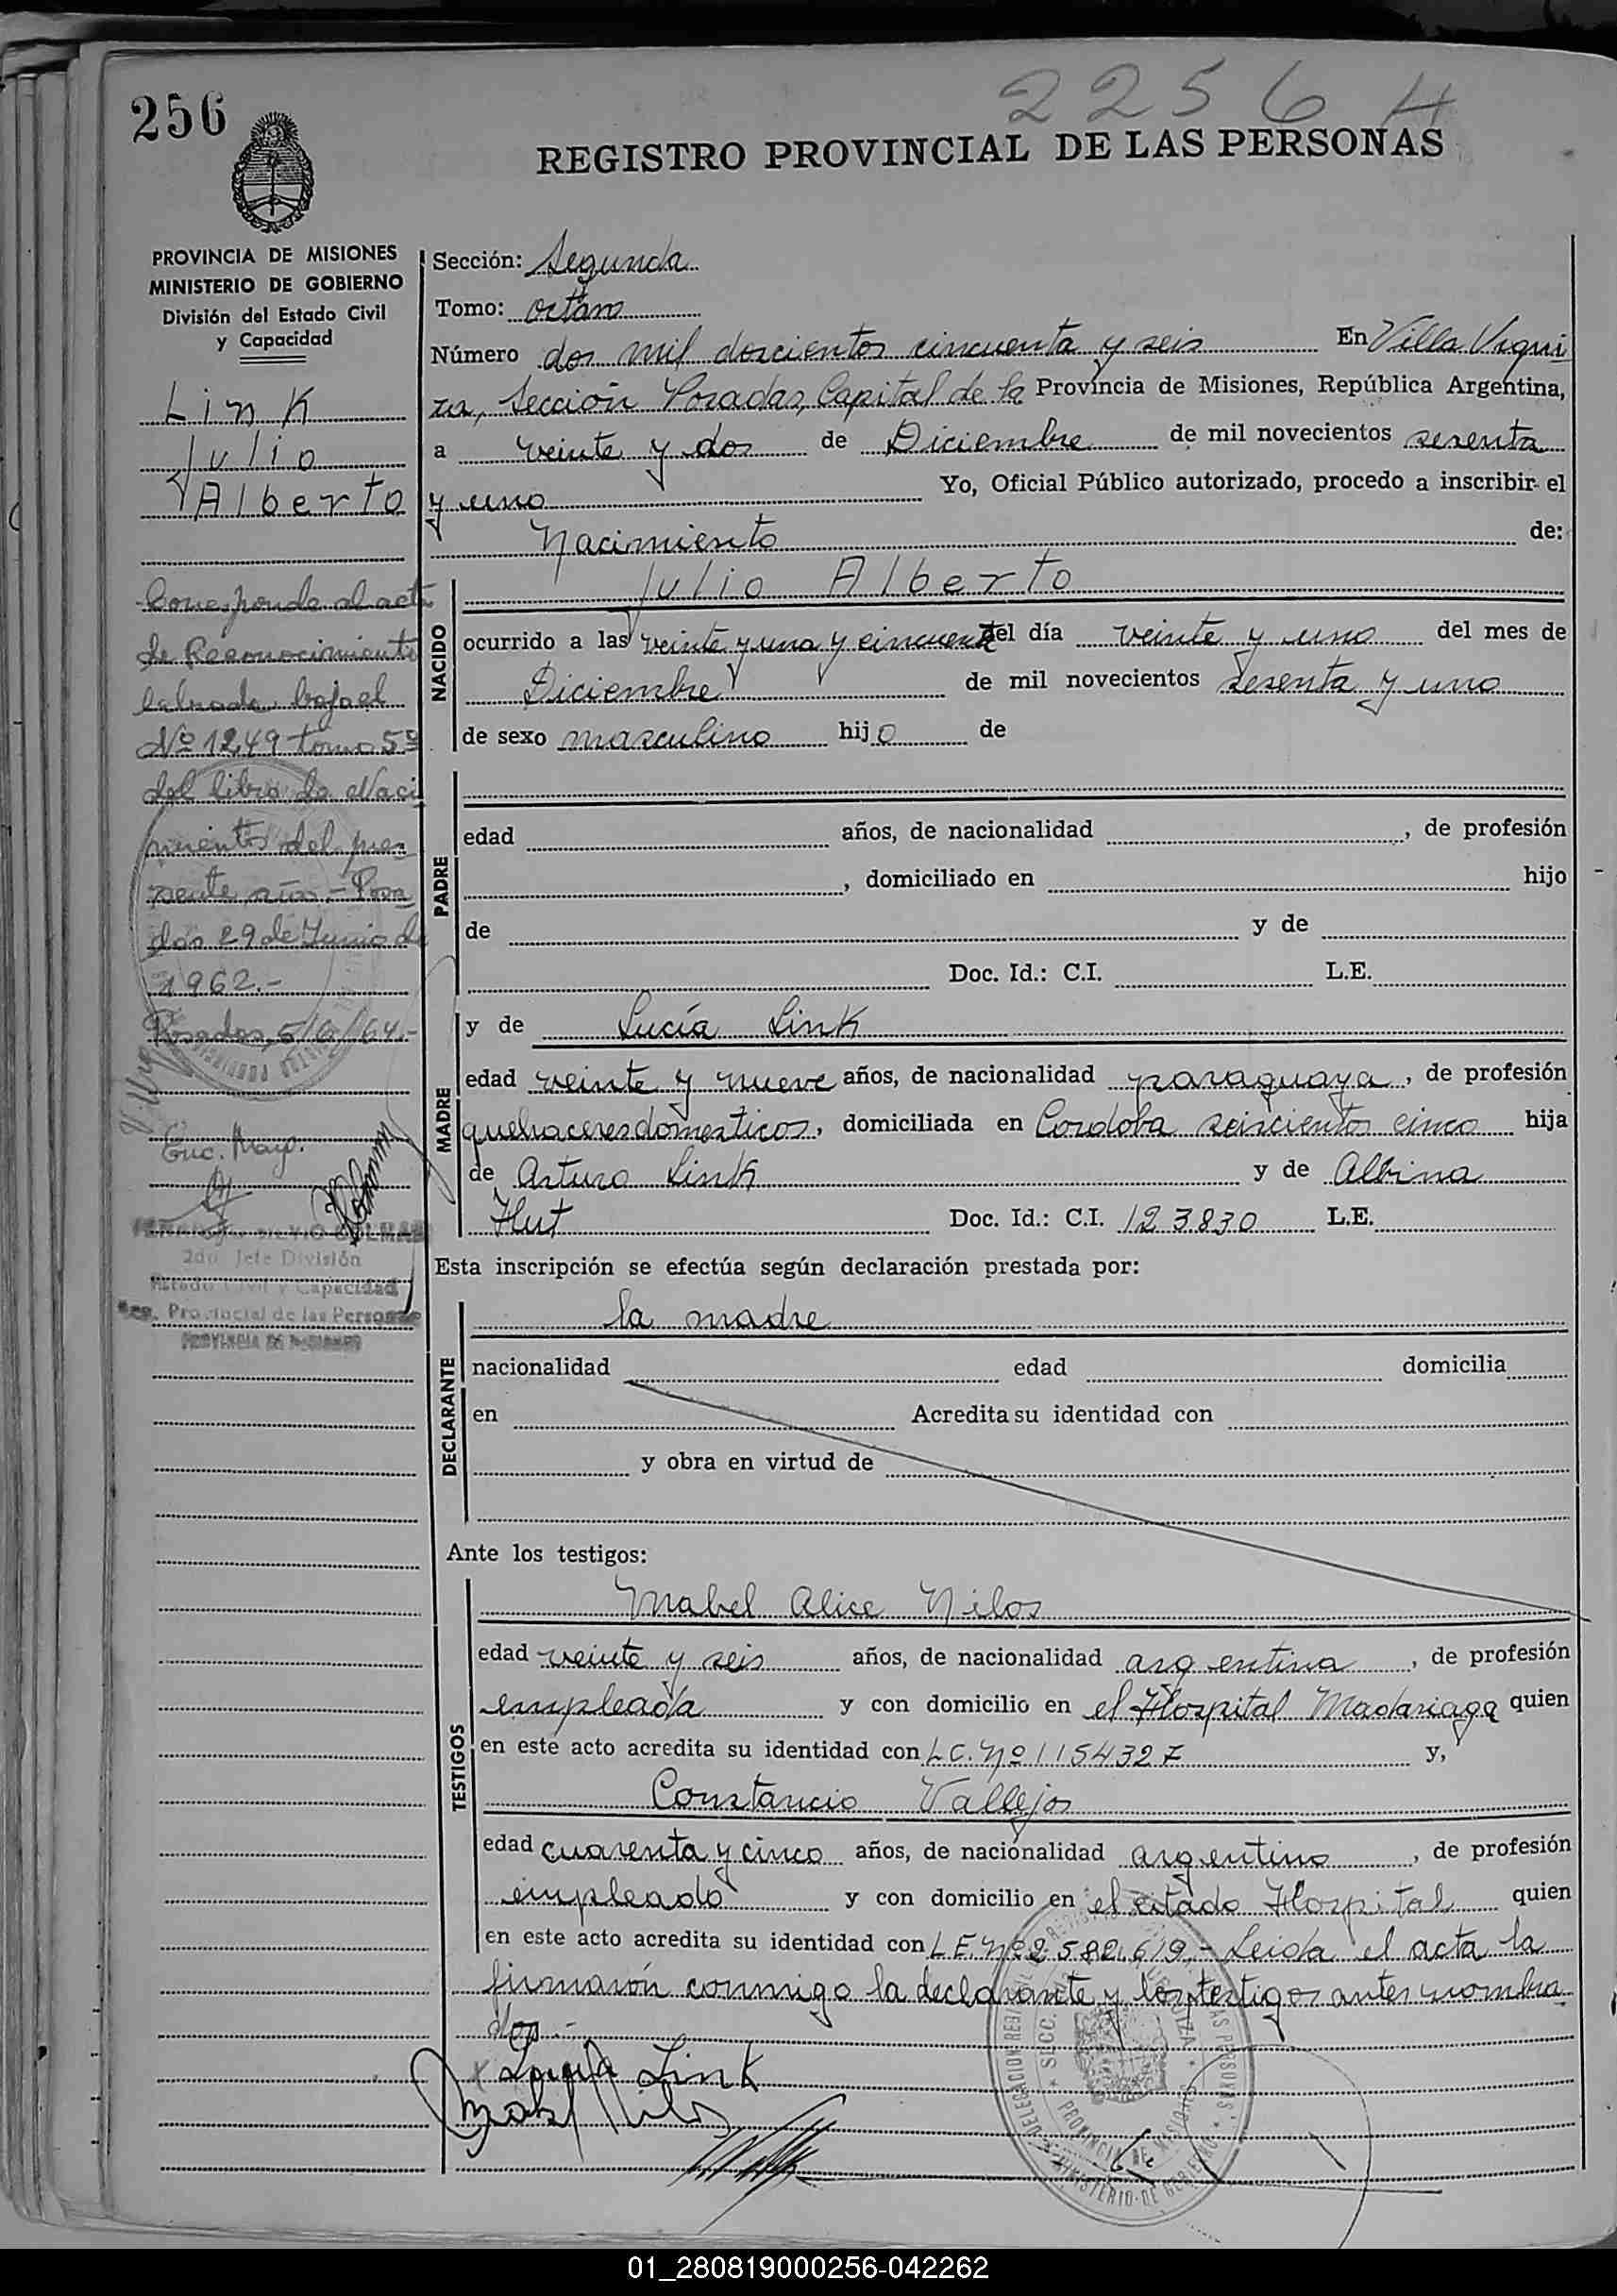 256
2256 H
REGISTRO PROVINCIAL DE LAS PERSONAS
PROVINCIA DE MISIONES
MINISTERIO DE GOBIERNO
División del Estado Civil
y Capacidad
Link
Julio
Alberto
Corresponde al acta
de Reconocimiento
labrada bajo el
Nº 1249 tomo 5º
del libro de Naci
mientos del pre
sente año.- Posa
das 29 de Junio de
1962.-
Posadas, 5/6/64.-
Enc. Mayo.
2do Jefe División
Estado Civil y Capacidad
Reg. Provincial de las Personas
PROVINCIA DE MISIONES
Sección: Segunda
Tomo: octavo
Número dos mil doscientos cincuenta y seis En Villa Urqui
za, Sección Posadas, Capital de la Provincia de Misiones, República Argentina,
a veinte y dos de Diciembre de mil novecientos sesenta
y uno Yo, Oficial Público autorizado, procedo a inscribir el
Nacimiento de:
NACIDO
Julio Alberto
ocurrido a las veinte y una y cincuenta del día veinte y uno del mes de
Diciembre de mil novecientos sesenta y uno
de sexo masculino hijo de
PADRE
edad años, de nacionalidad , de profesión
, domiciliado en hijo
de y de
Doc. Id.: C.I. L.E.
MADRE
y de Lucía Link
edad veinte y nueve años, de nacionalidad paraguaya, de profesión
quehaceres domesticos, domiciliada en Cordoba seiscientos cinco hija
de Arturo Link y de Albina
Hut Doc. Id.: C.I. 123.830 L.E.
Esta inscripción se efectúa según declaración prestada por:
DECLARANTE
la madre
nacionalidad edad domicilia
en Acredita su identidad con
y obra en virtud de
Ante los testigos:
TESTIGOS
Mabel Alice Nilos
edad veinte y seis años, de nacionalidad argentina, de profesión
empleada y con domicilio en el Hospital Madariaga quien
en este acto acredita su identidad con L.C. Nº 1154327 y,
Constancio Vallejos
edad cuarenta y cinco años, de nacionalidad argentino, de profesión
empleado y con domicilio en el citado Hospital quien
en este acto acredita su identidad con L.E. Nº 2.582.619.- Leida el acta la
firmaron conmigo la declarante y los testigos antes nombra
dos.-
x Lucia Link
Mabel Nilos
01_280819000256-042262